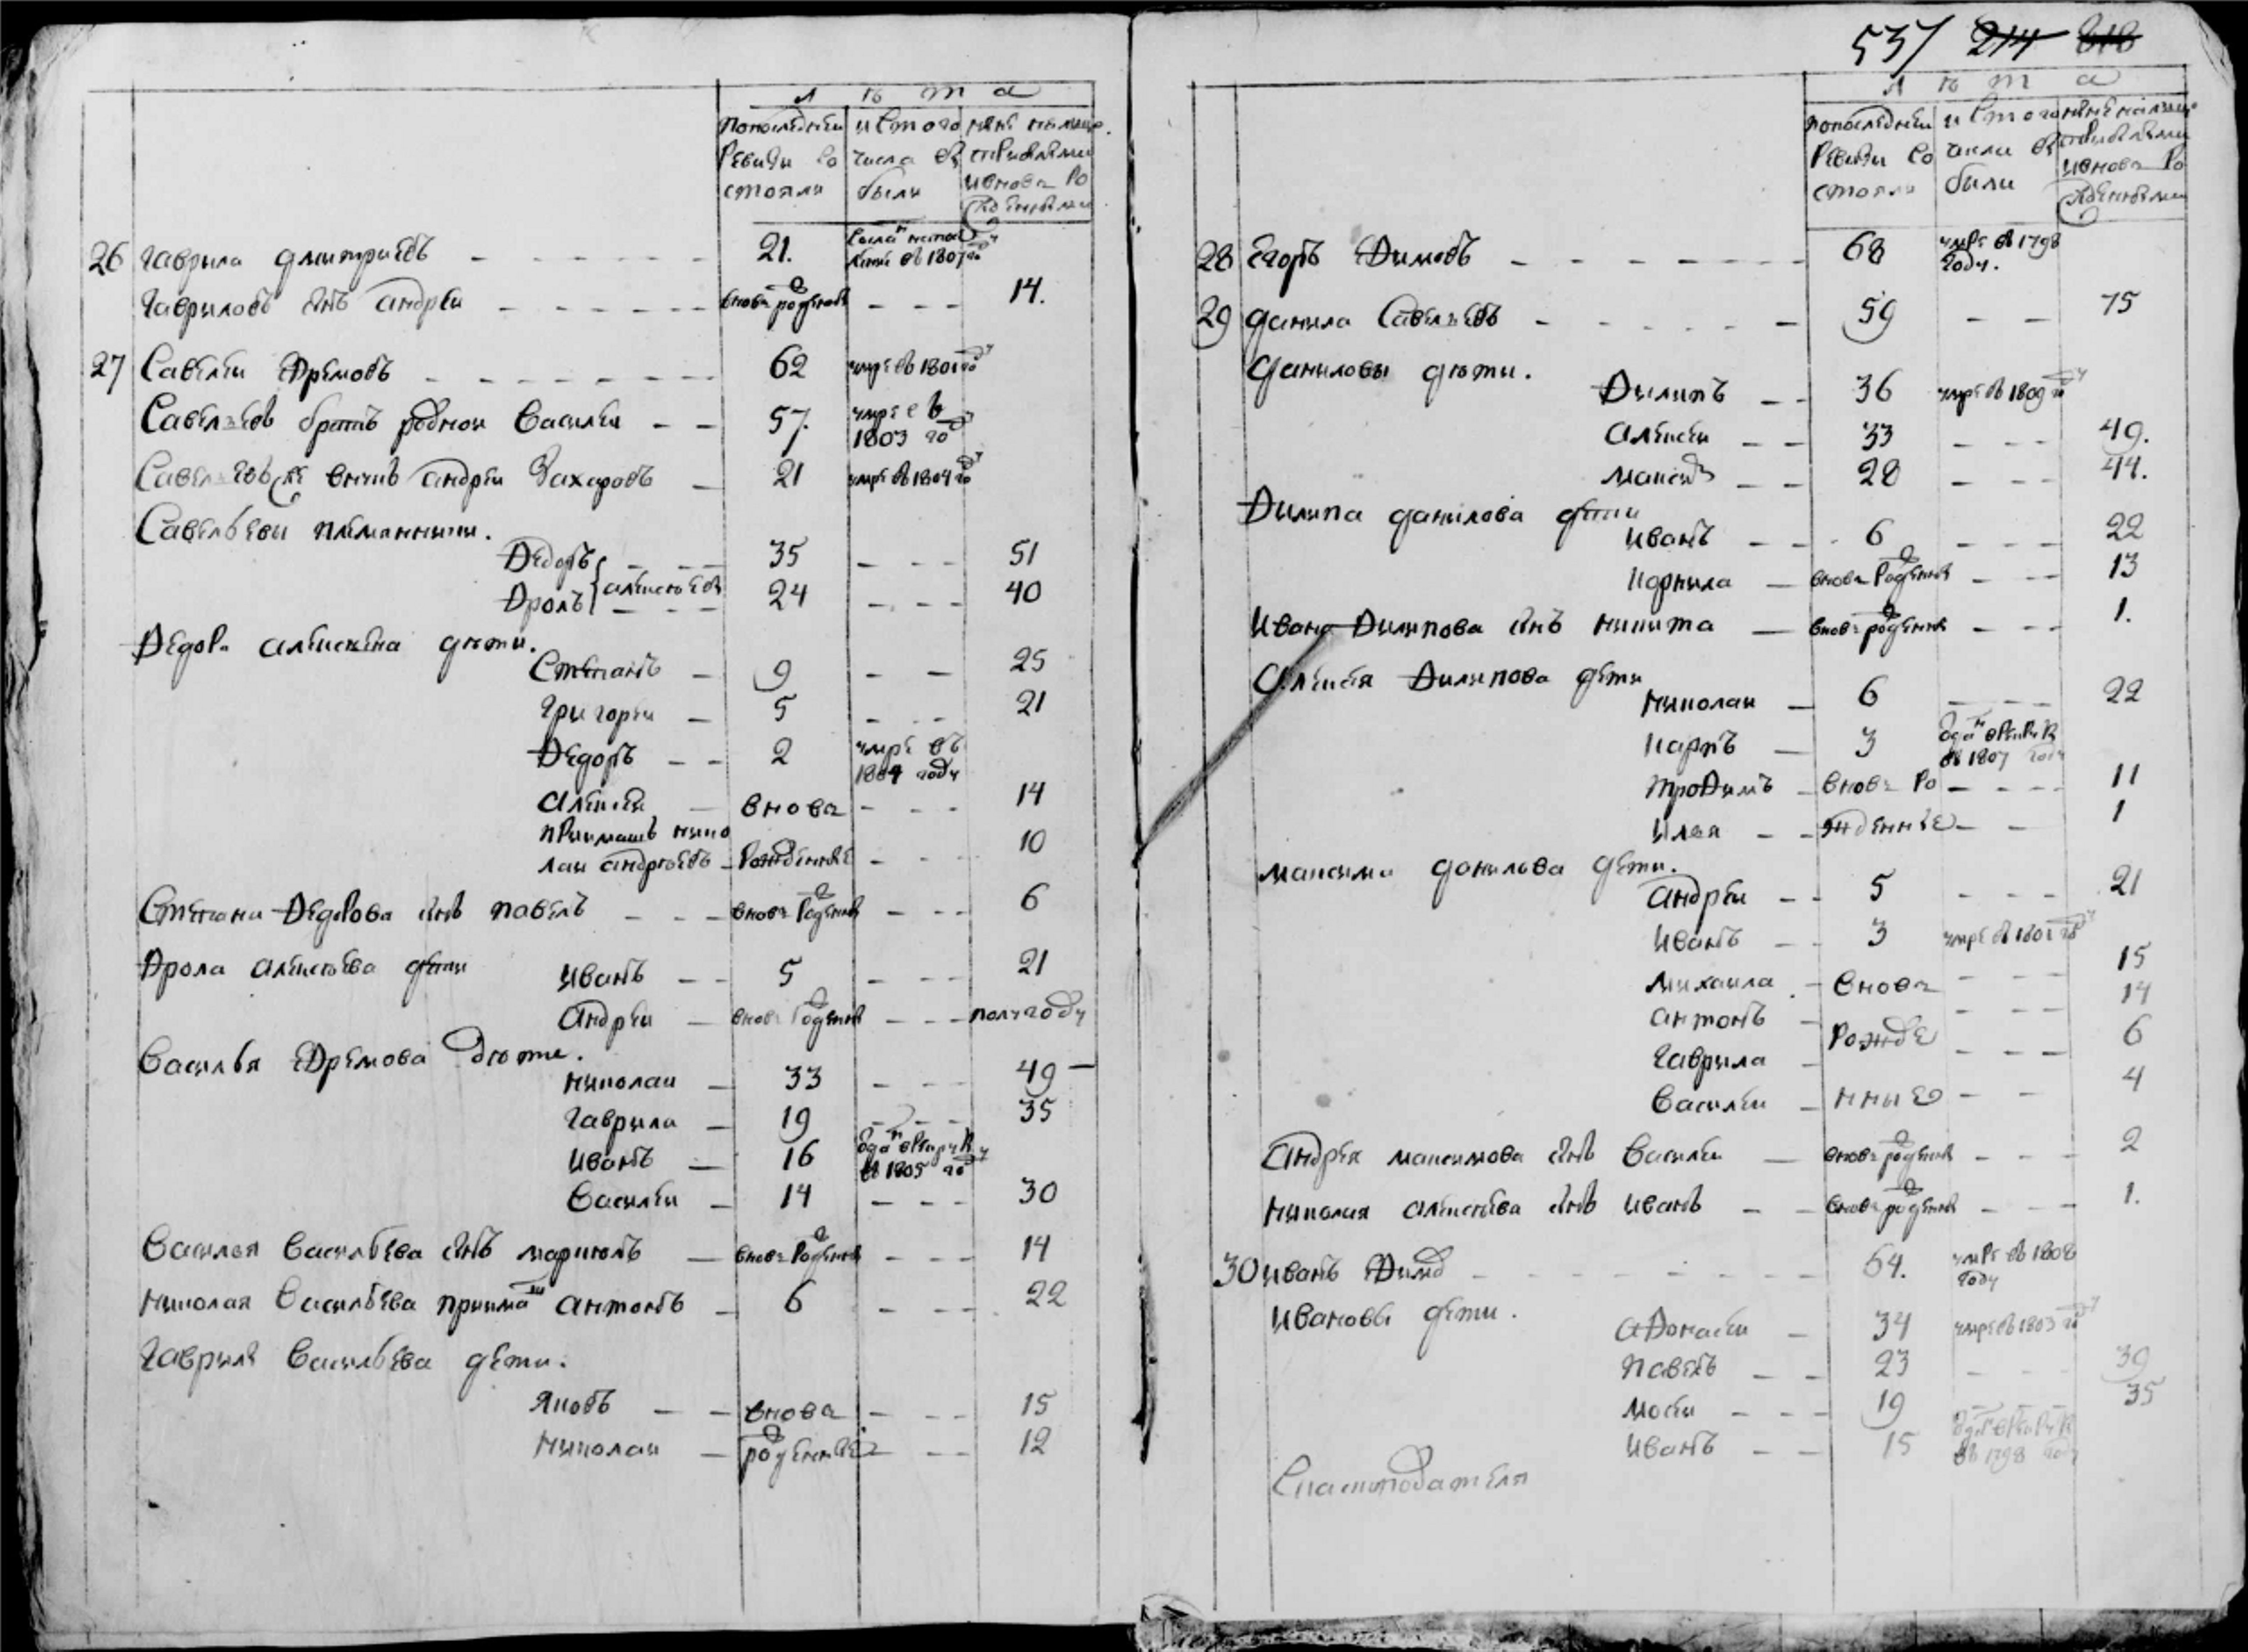 Лѣта
по последней ревизии состояли
и с того числа выбыли
ныне на лицо с прибылыми и новорожденными
26 Гаврила Дмитриевъ 21. в 1807 году
Гавриловъ сынъ Андреи вновь рожденой 14.
27 Савелеи Ефремовъ 62 умре въ 1801 году
Савельевъ братъ родной Василеи 57. умре въ
1803 году
Савельев же внукъ Андреи Захаровъ 21 умре въ 1804 году
Савельевы племянники.
Федоръ 35 51
Алексеевы
Фролъ 24 40
Федора Алексеева дѣти.
Степанъ 9 25
Григореи 5 21
Федоръ 2 умре въ
1804 году
Алексеи вновь 14
приимышъ Нико
лаи Андрѣевъ рожденные 10
Степана Федорова сынъ Павелъ вновь рожденой 6
Фрола Алексѣева дети
Иванъ 5 21
Андреи вновь рожденой полугоду
Василья Ефремова дѣти.
Николаи 33 49
Гаврила 19 35
Иванъ 16 отданъ в рекруты
въ 1805 году
Василеи 14 30
Василья Васильева сынъ вновь рожденой 14
Николая Васильева приимышъ Антонъ 6 22
Гаврилы Васильева дети.
Яковъ вновь 15
Николаи рожденные 12
537 214
Лѣта
по последней ревизии состояли
и с того числа выбыли
ныне на лицо с прибылыми и новорожденными
28 Егоръ Ефимовъ 68 умре въ 1798
году.
29 Данила Савельевъ 59 75
Даниловы дѣти.
Филипъ 36 умре въ 1809 году
Алексеи 33 49.
Максимъ 28 44.
Филипа Данилова дети
Иванъ 6 22
Корнила вновь рожденой 13
Ивана Филипова сынъ Никита вновь рожденой 1.
Алексея Филипова дети
Николаи 6 22
Карпъ 3 отданъ в рекруты
въ 1807 году
Трофимъ вновь ро 11
Илья жденные 1
Максима Данилова дети.
Андреи 5 21
Иванъ 3 умре въ 1801 году
Михаила вновь 15
Антонъ 14
Гаврила рожде 6
Василеи нные 4
Андрея Максимова сынъ Василеи вновь рожденой 2
Николая Алексеева сынъ Иванъ вновь рожденой 1.
30 Иванъ Ефимовъ 64. умре въ 1808
году
Ивановы дети.
Афонасеи 34 умре въ 1803 году
Павелъ 23 39
Мосеи 19 35
Иванъ 15 отданъ в рекруты
въ 1798 году